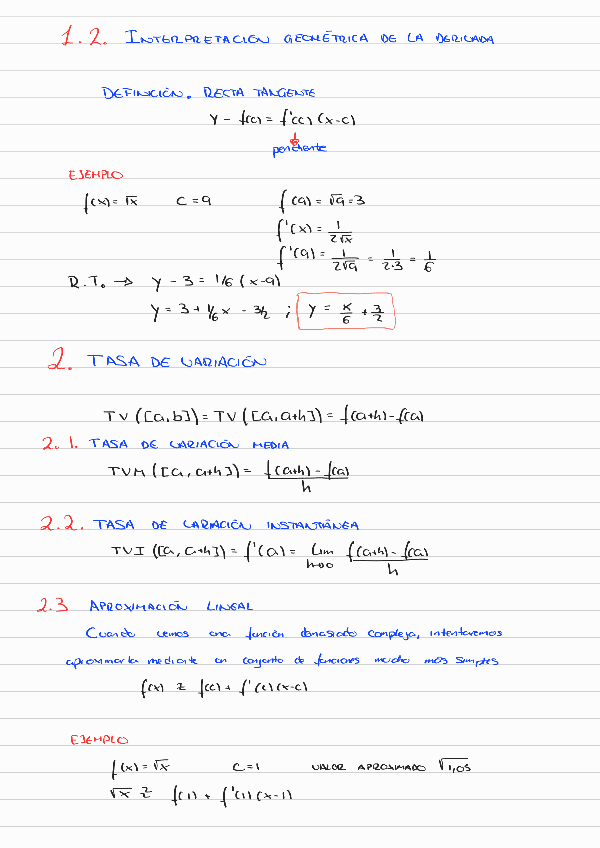 1.2. INTERPRETACIÓN GEOMÉTRICA DE LA DERIVADA
DEFINICIÓN. RECTA TANGENTE
y - f(c) = f'(c) (x-c)
pendiente
EJEMPLO
f(x) = √x c = 9 f(9) = √9 = 3
f'(x) = 1/(2√x)
f'(9) = 1/(2√9) = 1/(2·3) = 1/6
R.T. → y - 3 = 1/6 (x-9)
y = 3 + 1/6 x - 3/2 ; y = x/6 + 3/2
2. TASA DE VARIACIÓN
TV ([a,b]) = TV ([a, a+h]) = f(a+h) - f(a)
2.1. TASA DE VARIACIÓN MEDIA
TVM ([a, a+h]) = (f(a+h) - f(a))/h
2.2. TASA DE VARIACIÓN INSTANTÁNEA
TVI ([a, a+h]) = f'(a) = lim h→0 (f(a+h) - f(a))/h
2.3 APROXIMACIÓN LINEAL
Cuando vemos una función demasiado compleja, intentaremos
aproximarla mediante un conjunto de funciones mucho más simples
f(x) ≈ f(c) + f'(c) (x-c)
EJEMPLO
f(x) = √x c = 1 VALOR APROXIMADO √1,05
√x ≈ f(1) + f'(1) (x-1)